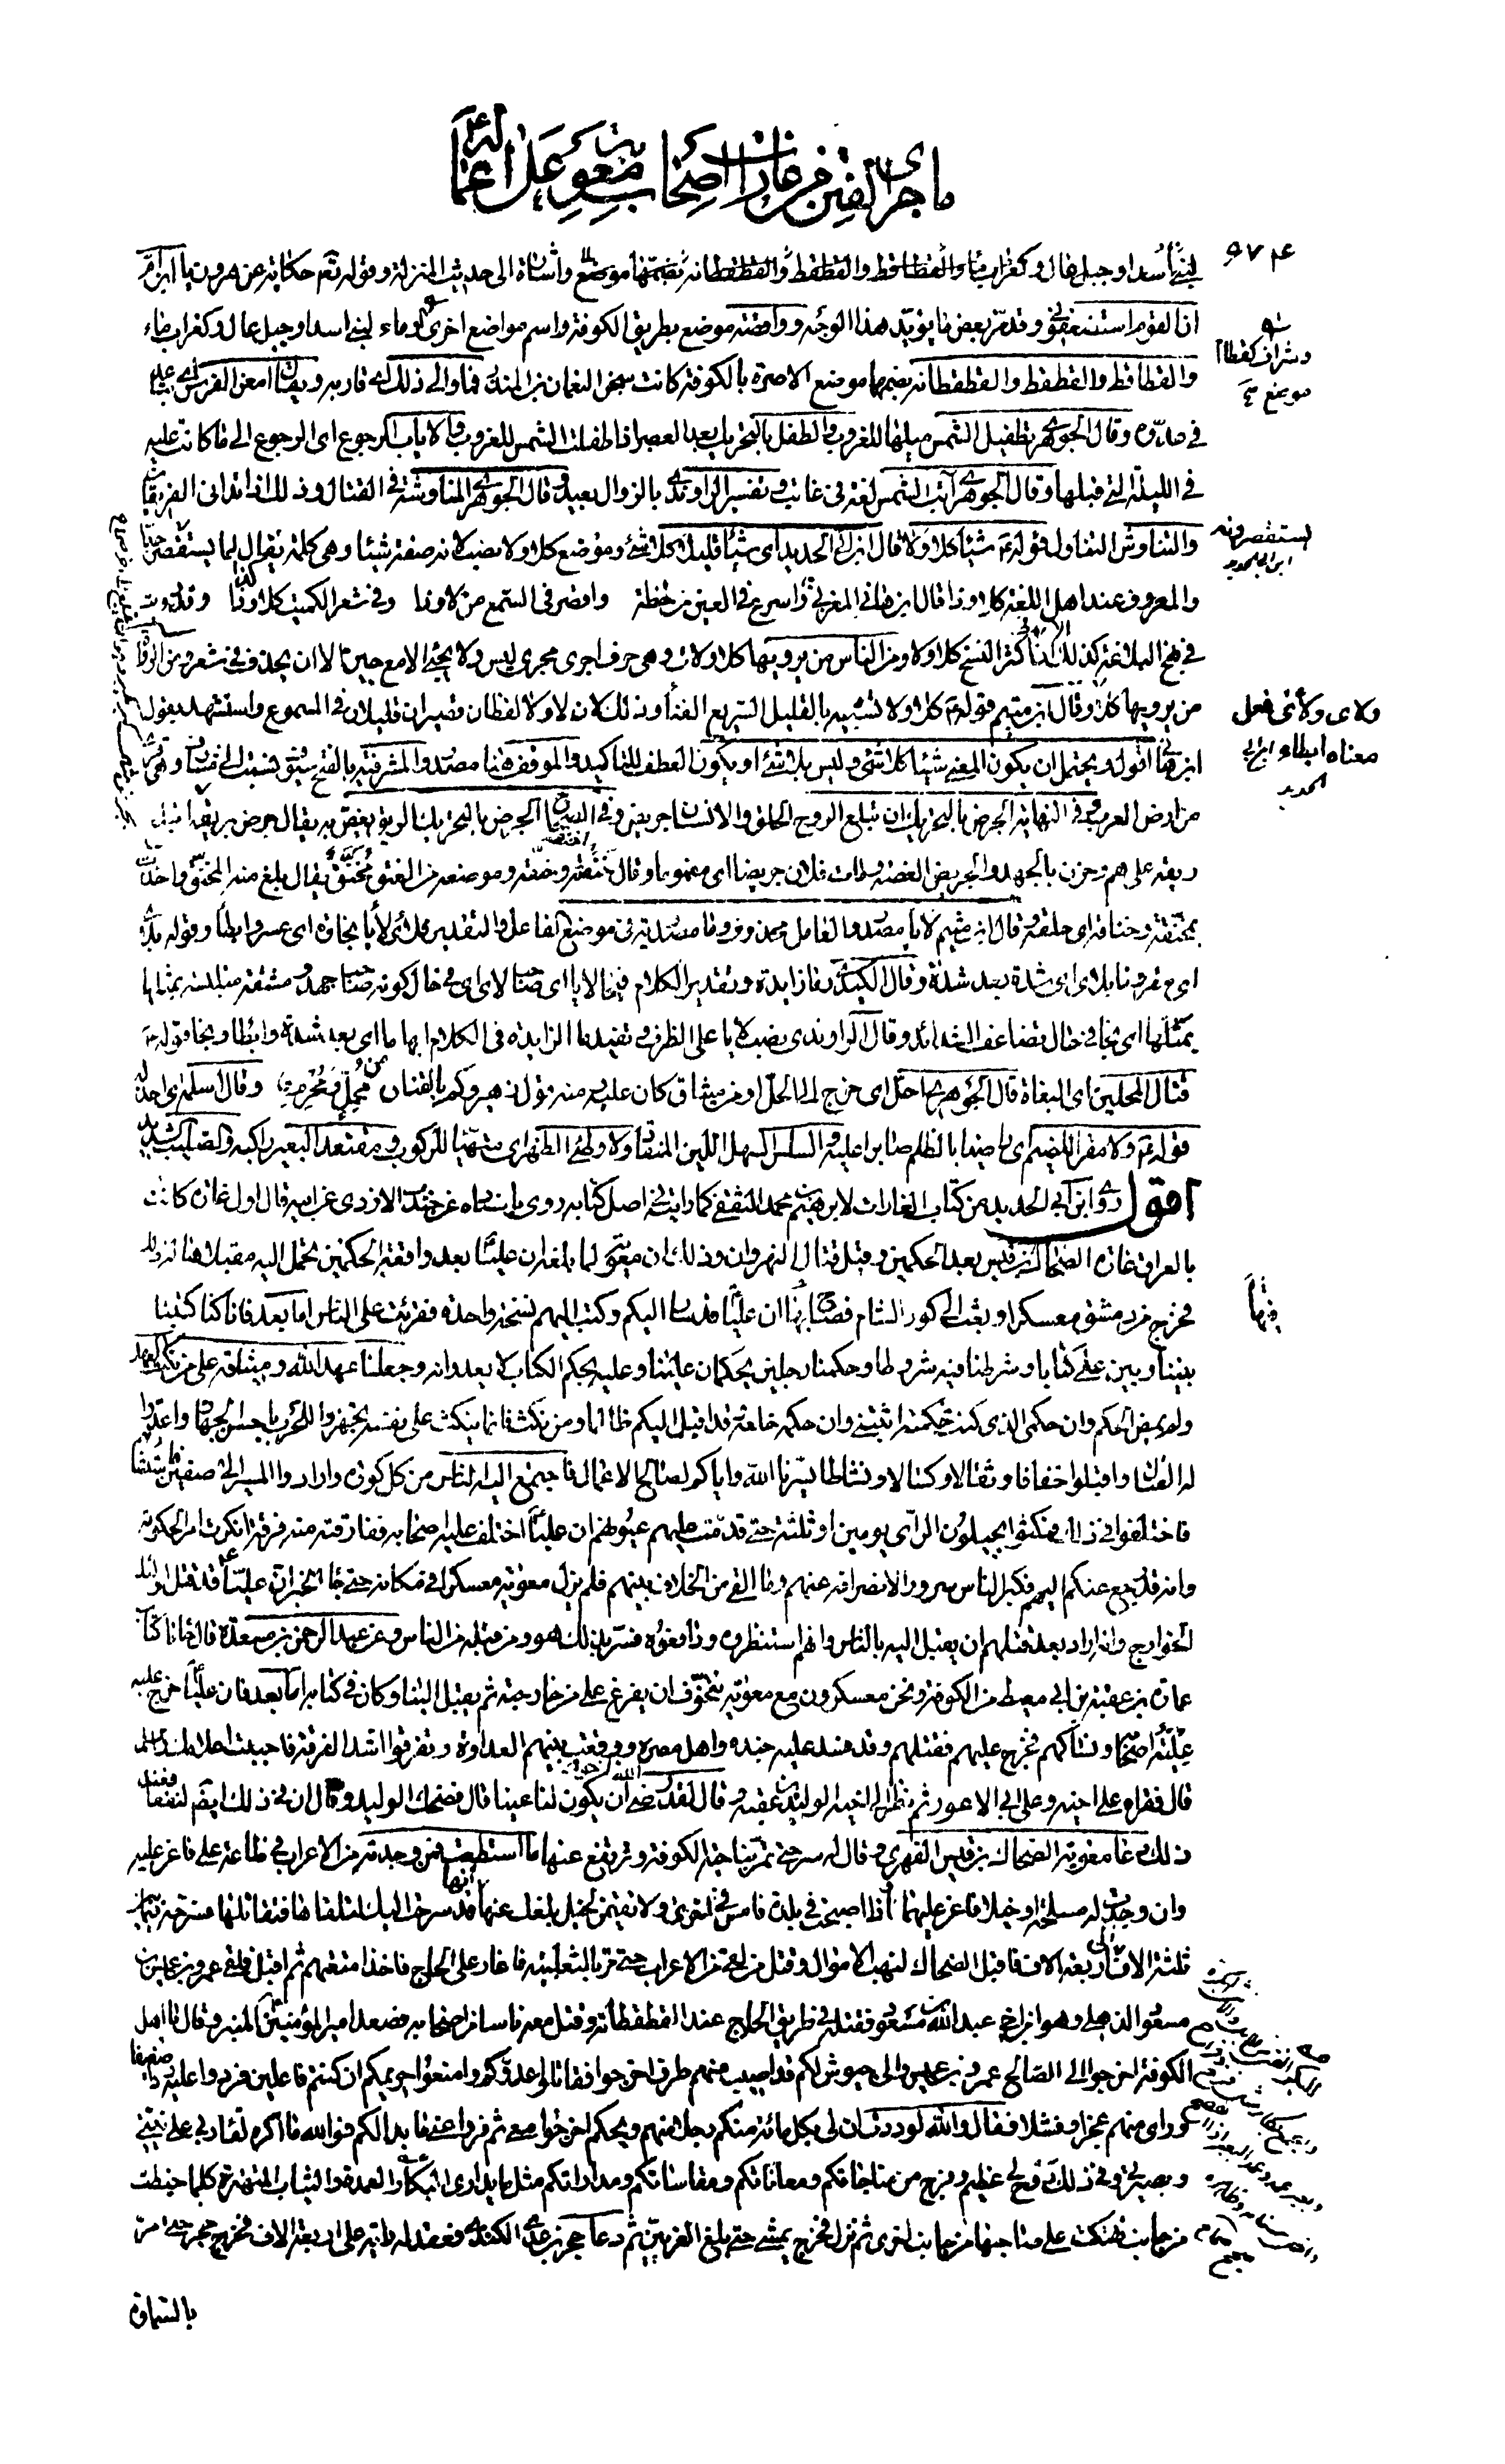 ما جرى من الفتن من غارات أصحاب معوية على أعماله ع
٩٧٤
لبني أسد او جبل عال وكغراب ماء والقطاقط والقطقط والقطقطانة بضمهما موضع واشارة الى حديث المنزلة وقوله تعم حكاية عن هرون يا ابن ام
ان القوم استضعفوني وقد مر بعض ما يؤيد هذا الوجه وواقصة موضع بطريق الكوفة واسم مواضع اخرى وماء لبني اسد وجبل عال وكغراب ماء
والقطاقط والقطقط والقطقطانة بضمهما موضع الاصرة بالكوفة كانت سجن النعمان بن المنذر فما والى ذلك اي قاربه ويقال امعن الفرس اي
في عدوه وقال الجوهري تطفيل الشمس ميلها للغروب والطفل بالتحريك بعد العصر اذا طفلت الشمس للغروب والاياب الرجوع اى الرجوع الى ما كانت عليه
في الليلة التي قبلها وقال الجوهري آبت الشمس لغة في غابت وتفسير الراوندي بالزوال بعيد وقال الجوهري المناوشة في القتال وذلك اذا تدانى الفريقان
والتناوش التناول قوله ع شيئا كلا ولا قال ابن ابي الحديد اي شيئا قليلا كلا شئ وموضع كلا ولا نصب لانه صفة شيئا وهي كلمة يقال لما يستقصر جدا
والمعروف عند اهل اللغة كلا وذا قال ابن هاني المغربي واسرع في العين من لحظة واقصر في السمع من لا وذا وفي شعر الكميت كلا وكذا وقد رويت
في نهج البلاغة كذلك الا ان اكثر النسخ كلا ولا ومن الناس من يرويها كلا ولات وهي حرف اجري مجرى ليس ولا يجئ الا مع حين الا ان يحذف في شعر ومن الرواة
من يرويها كلا ولاي وقال ابن ميثم قوله ع كلا ولا تشبيه بالقليل السريع الفناء وذلك لان لا ولا لفظان قصيران قليلان في المسموع واستشهد بقول
ابن هاني اقول ويحتمل ان يكون المعنى شيئا كلا شئ وليس بلا شئ او يكون العطف للتاكيد والموقف هنا مصدر والمشرفية بالفتح سيوف نسبت الى مشارف وهي قرى
من ارض العرب وفي النهاية الجرض بالتحريك ان تبلغ الروح الحلق والانسان جريض وفي الجرض بالتحريك الريق يغص به يقال جرض بريقه ابتلع
ريقه على هم وحزن بالجهد والجريض الغصة ومات فلان جريضا اي مغموما وقال خنقه وموضعه من العنق مخنق يقال بلغ منه المخنق واخذت
بمخنقه وخناقه اي حلقه وقال ابن ميثم لايا مصدر والعامل محذوف وما مصدرية في موضع الفاعل والتقدير فلاى لايا نجاؤه اي عسر وابطأ وقوله بلاى
اي مقرونا بلاى اي شدة بعد شدة وقال الكيدري ما زايدة وتقدير الكلام فنجا لايا اي صاحب لاى اي في حال كونه صاحب جهد ومشقة متلبسة بمثلها
بمثلها اي نجا في حال تضاعف الشدائد وقال الراوندي نصب لايا على الظرف وتفيد ما الزايدة في الكلام ابهاما اي بعد شدة وابطاء نجا وقوله ع
قتال المحلين اي البغاة قال الجوهري احل اي خرج الى الحل او من ميثاق كان عليه ومنه قول زهير وكم بالقنان من محل ومحرم وقال اسلمه اي خذله
قوله ع ولا مقرا للضيم اي راضيا بالظلم صابرا عليه والسلس السهل اللين المنقاد ولا وطئ الظهر اي متهيئا للركوب ومقتعد البعير راكبه والصليب الشديد
اقول روى ابن ابي الحديد من كتاب الغارات لابراهيم بن محمد الثقفي كما رايته في اصل كتابه روى باسناده عن جندب الازدي عن ابيه قال اول غارة كانت
بالعراق غارة الضحاك بن قيس بعد الحكمين وقبل قتال النهروان وذلك ان معوية لما بلغه ان عليا بعد واقعة الحكمين تحمل اليه مقبلا هاله ذلك
فخرج من دمشق معسكرا وبعث الى كور الشام فصاح بها ان عليا قد سار اليكم وكتب اليهم نسخة واحدة فقرئت على الناس اما بعد فانا كنا كتبنا
بيننا وبين علي كتابا وشرطنا فيه شروطا وحكمنا رجلين يحكمان علينا وعليه بحكم الكتاب لا يعدوانه وجعلنا عهد الله وميثاقه على من نكث العهد
ولم يمض الحكم وان حكمي الذي كنت حكمته اثبتني وان حكمه خلعه وقد اقبل اليكم ظالما ومن نكث فانما ينكث على نفسه تجهزوا للحرب باحسن الجهاز واعدوا
له القتال واقبلوا خفافا وثقالا وكسالا ونشاطا يسرنا الله واياكم لصالح الاعمال فاجتمع اليه الناس من كل كورة وارادوا المسير الى صفين فاستشارهم
فاختلفوا في ذلك فمكثوا يجيلون الراي يومين او ثلثة حتى قدمت عليهم عيونهم ان عليا اختلف عليه اصحابه ففارقته منه فرقة انكرت امر الحكومة
وانه قد رجع عنكم اليهم فكبر الناس سرورا لانصرافه عنهم وما القي من الخلاف بينهم فلم يزل معوية معسكرا في مكانه حتى جاء الخبر ان عليا ع قد قتل اولئك
الخوارج وانه اراد بعد قتلهم ان يقبل اليه بالناس وانهم استنظروه ودافعوه فسر بذلك هو ومن قبله من الناس وعن عبد الرحمن بن مسعدة قال جاءنا كتاب
عمارة بن عقبة بن ابي معيط من الكوفة ونحن معسكرون مع معوية نتخوف ان يفرغ علي من خارجته ثم يقبل الينا وكان في كتابه اما بعد فان عليا خرج عليه
علية اصحابه ونساكهم فخرج عليهم فقتلهم وقد فسد عليه جنده واهل مصره ووقعت بينهم العداوة وتفرقوا اشد الفرقة فاحببت اعلامك والسلم
قال فقراه على اخيه وعلى ابي الاعور ثم نظر الى اخيه الوليد بن عقبة وقال لقد رضي اخوك ان يكون لنا عينا قال فضحك الوليد وقال ان في ذلك ايضا لنفعا فعند
ذلك دعا معوية الضحاك بن قيس الفهري وقال له سر حتى تمر بناحية الكوفة وترتفع عنها ما استطعت فمن وجدته من الاعراب في طاعة علي فاغر عليه
وان وجدت له مسلحة او خيلا فاغر عليها واذا اصبحت في بلدة فامس في اخرى ولا تقيمن لخيل بلغك عنها انها قد سرحت اليك لتلقاها فتقاتلها فسرحه فيما بين
ثلثة الاف الى اربعة الاف فاقبل الضحاك لنهب الاموال وقتل من لقي من الاعراب حتى مر بالثعلبية فاغار على الحاج فاخذ امتعتهم ثم اقبل فلقي عمرو بن عميس بن
مسعود الذهلي وهو ابن اخي عبد الله بن مسعود فقتله في طريق الحاج عند القطقطانة وقتل معه ناسا من اصحابه فصعد امير المؤمنين ع المنبر وقال يا اهل
الكوفة اخرجوا الى العبد الصالح عمرو بن عميس والى جيوش لكم قد اصيب منهم طرف اخرجوا فقاتلوا عدوكم وامنعوا حريمكم ان كنتم فاعلين فردوا عليه ردا ضعيفا
وراى منهم عجزا وفشلا فقال والله لوددت ان لي بكل مائة منكم رجلا منهم ويحكم اخرجوا معي ثم فروا عني ما بدا لكم فوالله ما اكره لقاء ربي على نيتي
وبصيرتي وفي ذلك روح لي عظيم وفرج من مناجاتكم ومعاناتكم ومقاساتكم ومداراتكم مثل ما يدارى البكار العمدة والثياب المتهترة كلما خيطت
من جانب تهتكت على صاحبها من جانب اخرى ثم نزل فخرج يمشي حتى بلغ الغريين ثم دعا حجر بن عدي الكندي فعقد له راية على اربعة الاف فخرج حجر حتى مر
بالسماوة
وشراف كقطام
موضع
يستقصرونه
ابن ابي الحديد
ولاى ولأى فعل
معناه ابطاء ابن ابي
الحديد
فيها